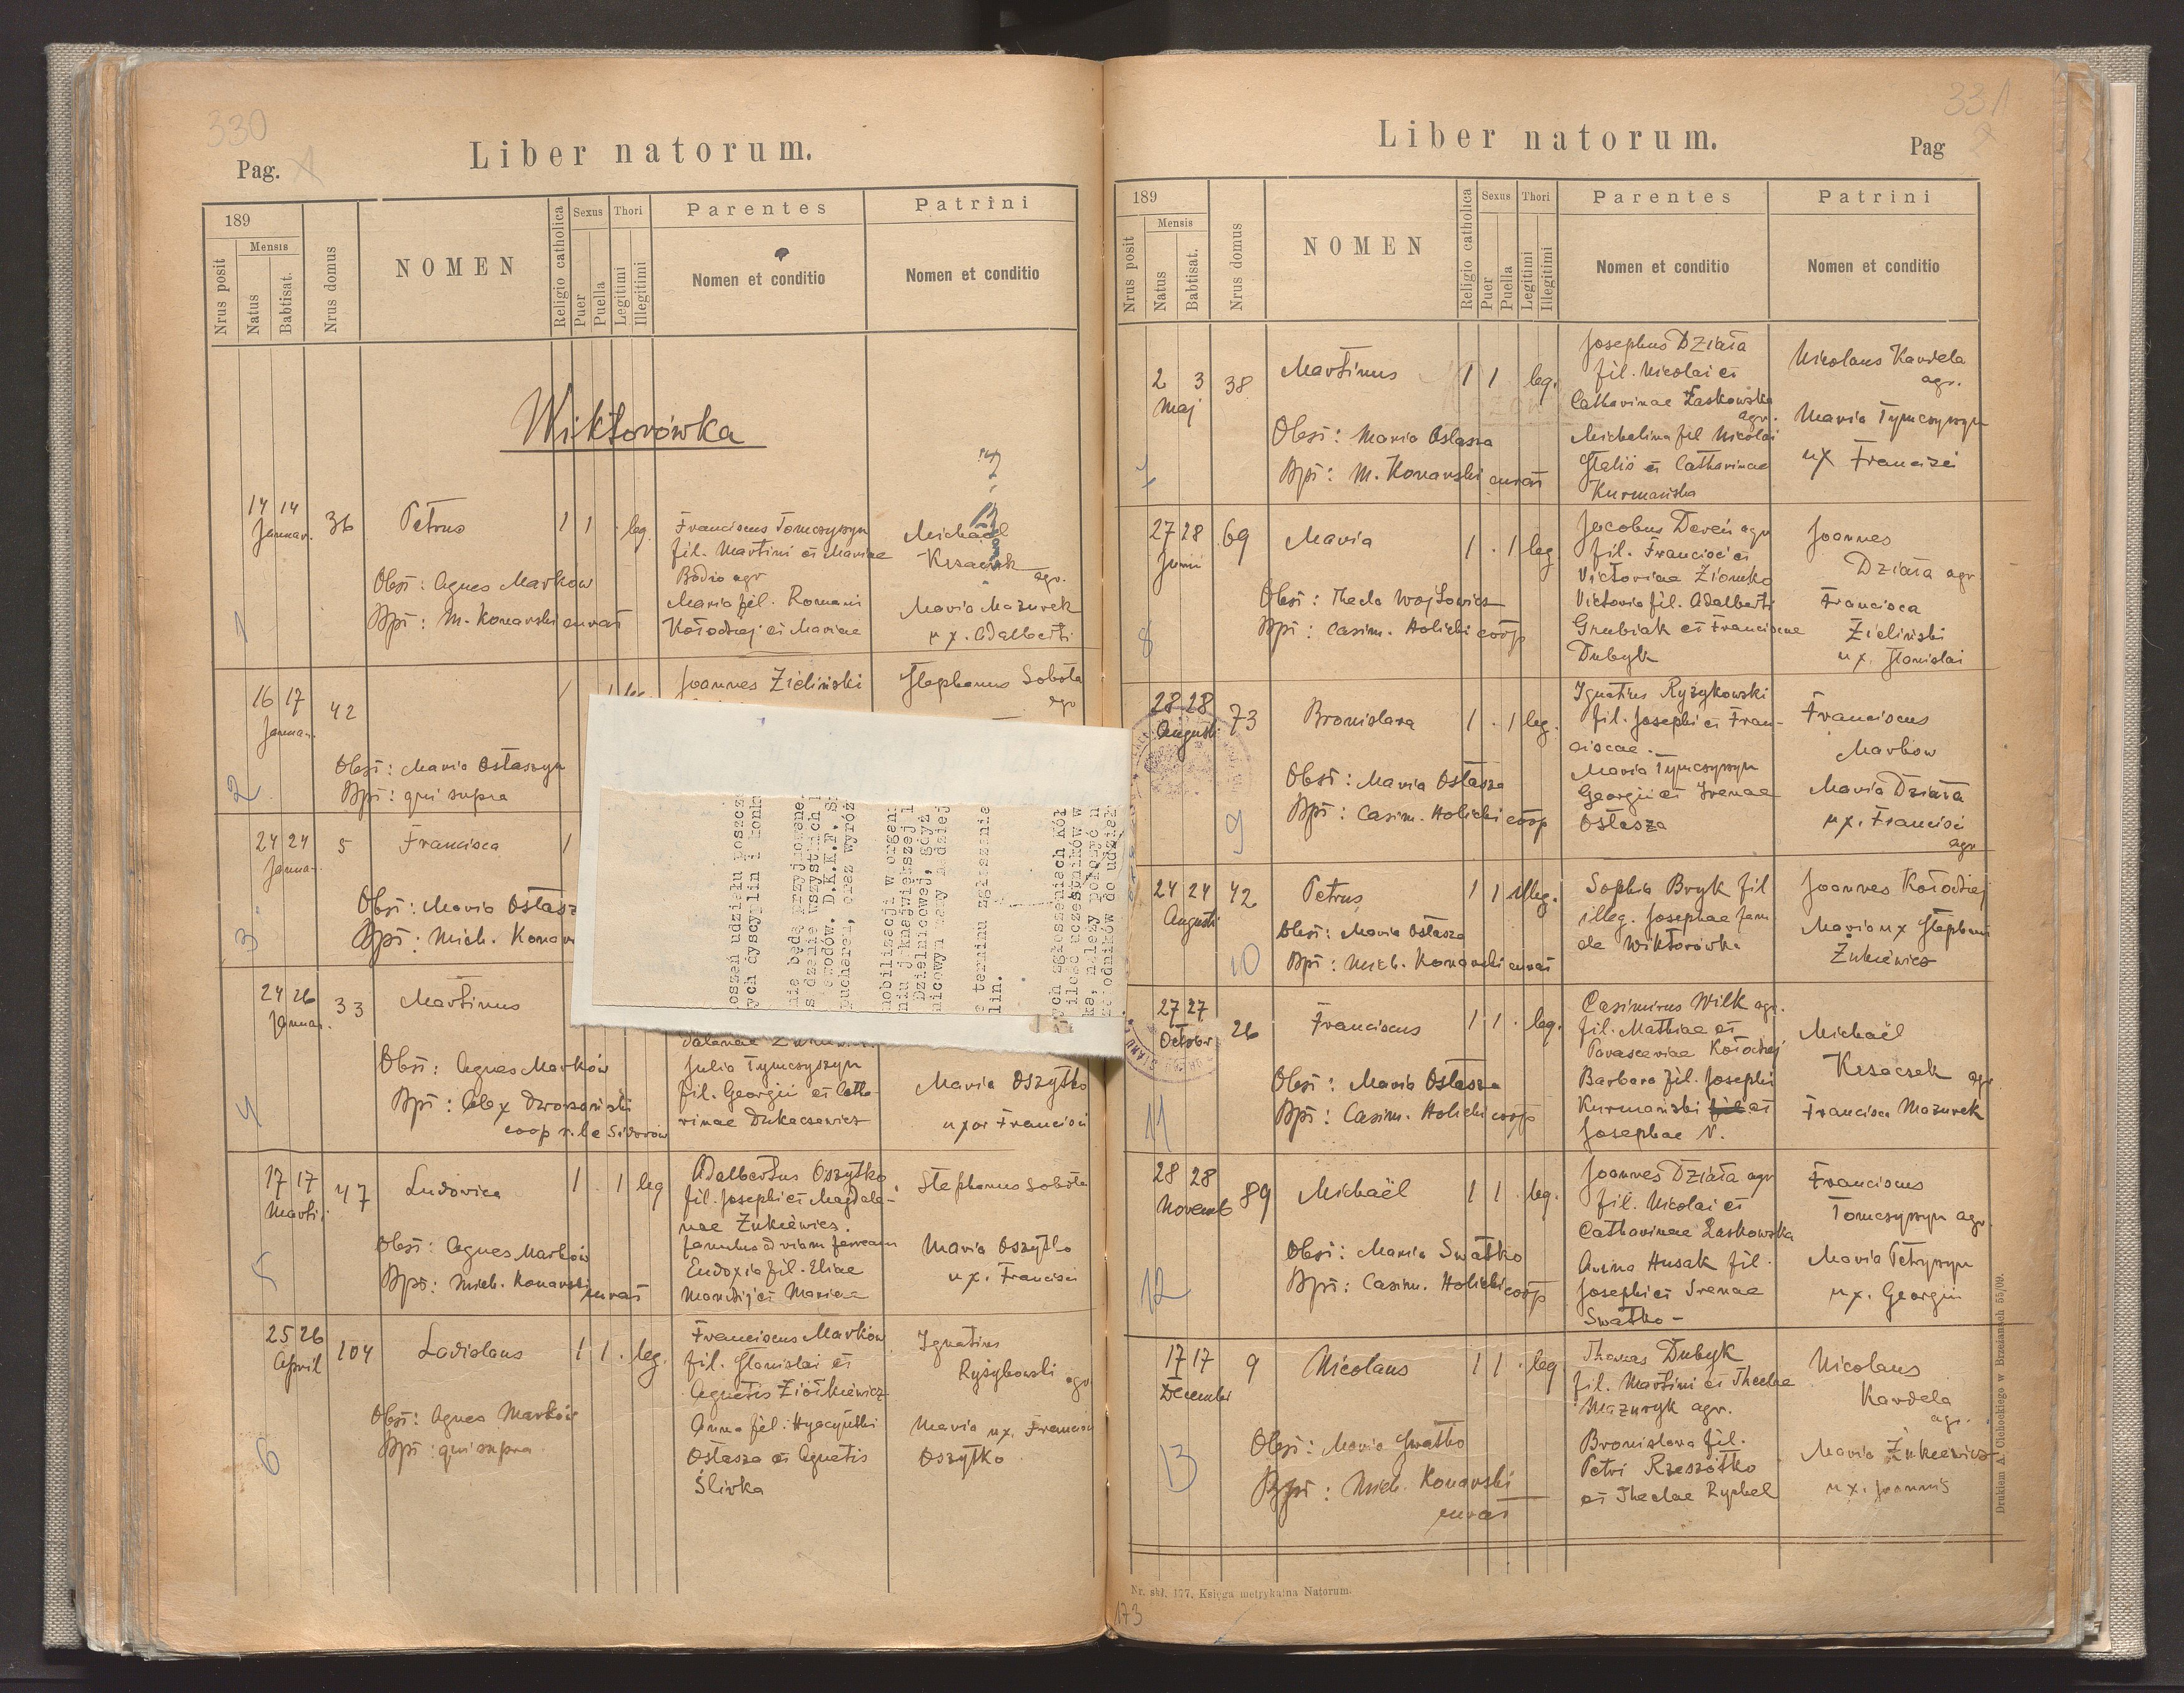 330
Pag. 1
Liber natorum.
189
Nrus posit
Mensis
Natus
Babtisat.
Nrus domus
NOMEN
Religio catholica
Sexus
Puer
Puella
Thori
Legitimi
Illegitimi
Parentes
Nomen et conditio
Patrini
Nomen et conditio
Wiktorówka
1
14 14
Januar.
36
Petrus
1 1 . leg.
Obst: Agnes Markow
Bpt: M. Konarski curat
Franciscus Tomczyszyn
fil. Martini et Mariae
Bodio agr
Maria fil. Romani
Kołodziej et Mariae
Michael
Krzaczek
agr.
Maria Mazurek
ux. Adalberti
2
16 17
Januar.
42
Obst: Maria Ostaszyn
Bpt: qui supra
Joannes Zieliński
Stephanus Sobota
agr
3
24 24
Januar.
5
Francisca
1
Obst: Maria Ostasz
Bpt: Mich. Konar
4
24 26
Januar.
33
Martinus
Obst: Agnes Marków
Bpt: Alex Dworzański
coop r. l. e Sidorów
Julia Tymczyszyn
fil. Georgii et Catha-
rinae Dukaczewicz
Maria Oszytko
uxor Francisci
5
17 17
Martii
47
Ludovica
1 . 1 leg
Obst: Agnes Marków
Bpt: Mich. Konarski curat
Adalbertus Oszytko
fil. Josephi et Magdale-
nae Żukiewicz.
famulus ad viam ferream
Eudoxia fil. Eliae
Mandzij et Mariae
Stephanus Sobota
Maria Oszytko
ux. Francisci
6
25 26
April
104
Ladislaus
1 1 . leg.
Obst: Agnes Marków
Bpt: qui supra
Franciscus Marków
fil. Stanislai et
Agnetis Ziółkiewicz
Anna fil. Hyacynthi
Ostasza et Agnetis
Śliwka
Ignatius
Ryżykowski agr.
Maria ux. Francisci
Oszytko
oszeń udziału poszcz
ych dyscyplin i konk
nie będą przyjmowane
D.K.K.F.
pucharem, oraz wyróż
mobilizacji w organ
niu jaknajwiększej
Dzielnicowej, gdyż
nicowym mamy nadziej
e terminu zgłaszania
lin.
ych zgłoszeniach kół
ilość uczestników w
ka, należy położyć n
zawodników do udział
331
Pag 2
Liber natorum.
189
Nrus posit
Mensis
Natus
Babtisat.
Nrus domus
NOMEN
Religio catholica
Sexus
Puer
Puella
Thori
Legitimi
Illegitimi
Parentes
Nomen et conditio
Patrini
Nomen et conditio
7
2 3
Maj
38
Martinus
1 1 leg.
Obst: Maria Ostasza
Bpt: M. Konarski curat
Josephus Działa
fil. Nicolai et
Catharinae Laskowska
agr.
Michelina fil Nicolai
Stelis et Catharinae
Kurmańska
Nicolaus Kardela
agr.
Maria Tymczyszyn
ux Francisci
8
27 28
Junii
69
Maria
1 . 1 leg
Obst: Thecla Wojtowicz
Bpt: Casim. Holicki coop
Jacobus Dereń agr
fil. Francisci et
Victoriae Ziomko
Victoria fil. Adalberti
Grubiak et Franciscae
Dubyk
Joannes
Działa agr
Francisca
Zieliński
ux. Stanislai
9
28 28
Augusti
73
Bronislava
1 . 1 leg.
Obst: Maria Ostasza
Bpt: Casim. Holicki coop
Ignatius Ryżykowski
fil. Josephi et Fran-
ciscae.
Maria Tymczyszyn
Georgii et Irenae
Ostasza
Franciscus
Markow
Maria Działa
ux. Francisci
agr
10
24 24
Augusti
42
Petrus
1 1 illeg.
Obst: Maria Ostasza
Bpt: Mich. Konarski curat
Sophia Bryk fil
illeg. Josephae fam
de Wiktorówka
Joannes Kołodziej
Maria ux Stephani
Żukiewicz
11
27 27
October
26
Franciscus
1 1 . leg.
Obst: Maria Ostasza
Bpt: Casim. Holicki coop
Casimirus Wilk agr.
fil. Mathiae et
Parasceviae Kołodziej
Barbara fil. Josephi
Kurmański fil et
Josephae N.
Michaël
Krzaczek agr
Francisca Mazurek
12
28 28
Novemb
89
Michaël
1 1 . leg.
Obst: Maria Swatko
Bpt: Casim. Holicki coop
Joannes Działa agr
fil. Nicolai et
Catharinae Laskowska
Anna Husak fil.
Josephi et Irenae
Swatko -
Franciscus
Tomczyszyn agr.
Maria Petryszyn
ux. Georgii
13
17 17
December
9
Nicolaus
1 1 . leg
Obst: Maria Swatko
Bpt: Mich. Konarski
curat
Thomas Dubyk
fil. Martini et Theclae
Mazuryk agr.
Bronislava fil.
Petri Rzeszótko
et Theclae Ryphel
Nicolaus
Kardela
agr.
Maria Żukiewicz
ux. Joannis
Drukiem A. Cichockiego w Brzeżanach 55/09.
Nr. skł. 177. Księga metrykalna Natorum.
173